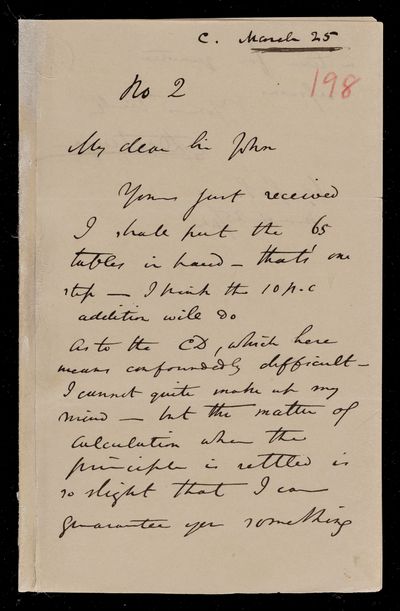 c. March 25
198
No 2
My dear Sir John
Yours just received
I shall put the 65
tables in hand – that's one
step – I think the 10 p.c
addition will do
As to the CD, which here
means confoundedly difficult –
I cannot quite make up my
mind – but the matter of
calculation when the
principle is settled is
so slight that I can
guarantee you something